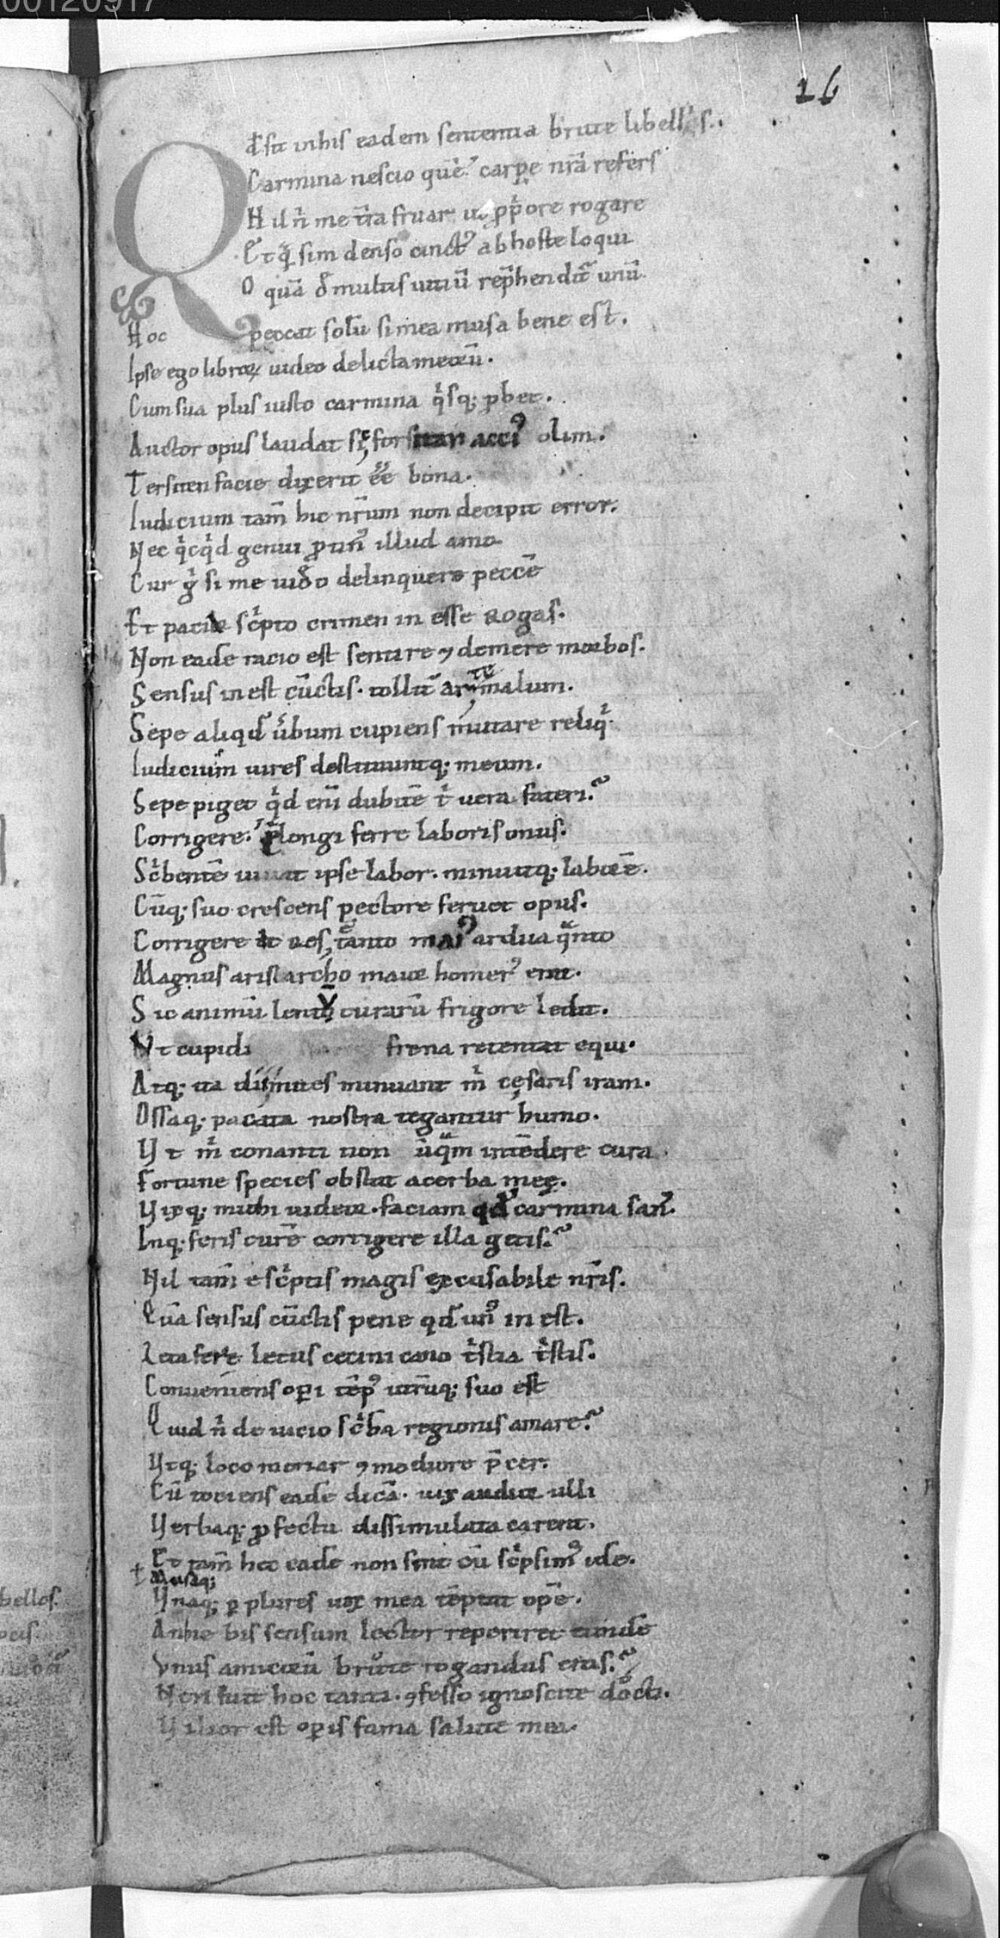 00120917
16
Qd sit in his eadem sententia brute libellis.
Carmina nescio quē carpe nr̄a refers
Nil n̄ me t̄ra fruar ut ꝓpiore rogare
Et q̄ sim denso cinctꝰ ab hoste loqui
O quā d̄ multis uitiū rep̄henditʳ unū
Hoc peccat solū si mea musa bene est.
Ipse ego libroꝝ uideo delicta meoꝝ.
Cum sua plus iusto carmina qͥsq; ꝓbet.
Auctor opus laudat sic forsitan acciꝰ olim.
Tersiten facie dixerit eē bona.
Iudicium tam̄ hic nr̄um non decipit error.
Nec qͥcqͥd genui ꝓtinꝰ illud amo
Cur gͥ si me uideo delinquere peccē
Et paciar scͥpto crimen in esse rogas.
Non eadē racio est sentire ⁊ demere morbos.
Sensus in est cūctis. tollitʳ arte malum.
Sepe aliqd̄ ūbum cupiens mutare relinqͦ.
Iudicium uires destituuntq; meum.
Sepe piget qͥd eni dubitē tͥ uera fateri?
Corrigere. ⁊ longi ferre laboris onus.
Scͥbentē iuuat ipse labor. minuitq; laborē.
Cūq; suo crescens pectore feruet opus.
Corrigere at res tanto maiꝰ ardua qͣnto
Magnus aristarcho maior homerꝰ erat.
Sic animū lento curarū frigore ledit.
Vt cupidi frena retentat equi.
Atq; ita di mites minuant mͥ cęsaris iram.
Ossaq; pacata nostra tegantur humo.
Vt mͥ conanti non ūqͣm intēdere cura
Fortune species obstat acerba meę.
Vixq; mihi uideor. faciam qd̄ carmina sanꝰ.
Inq; feris curē corrigere illa getis?
Nil tam̄ e scͥptis magis excusabile nr̄is.
Quā sensus cūctis pene qd̄ unꝰ in est.
Leta fere letus cecini cano tͥstia tͥstis.
Conueniens oꝑi tēpꝰ utrūq; suo est
Quid nͥ de uicio scͥba regionis amare?
Vtq; loco moriar ⁊modiore p̄cer.
Cū tociens eadē dicā. uix audior ulli
Verbaq; ꝓfectu dissimulata carent.
Et tam̄ hec eadē non sint cū scͥpsimꝰ idē.
Musaq;
Vnaq; ꝑ plures uox mea tēptat opē.
An ne bis sensum lector reperiret eundē
Vnus amicoꝝ brute rogandus eras?
Non fuit hoc tanti. ⁊fesso ignoscite docti.
Vilior est oꝑis fama salute mea.